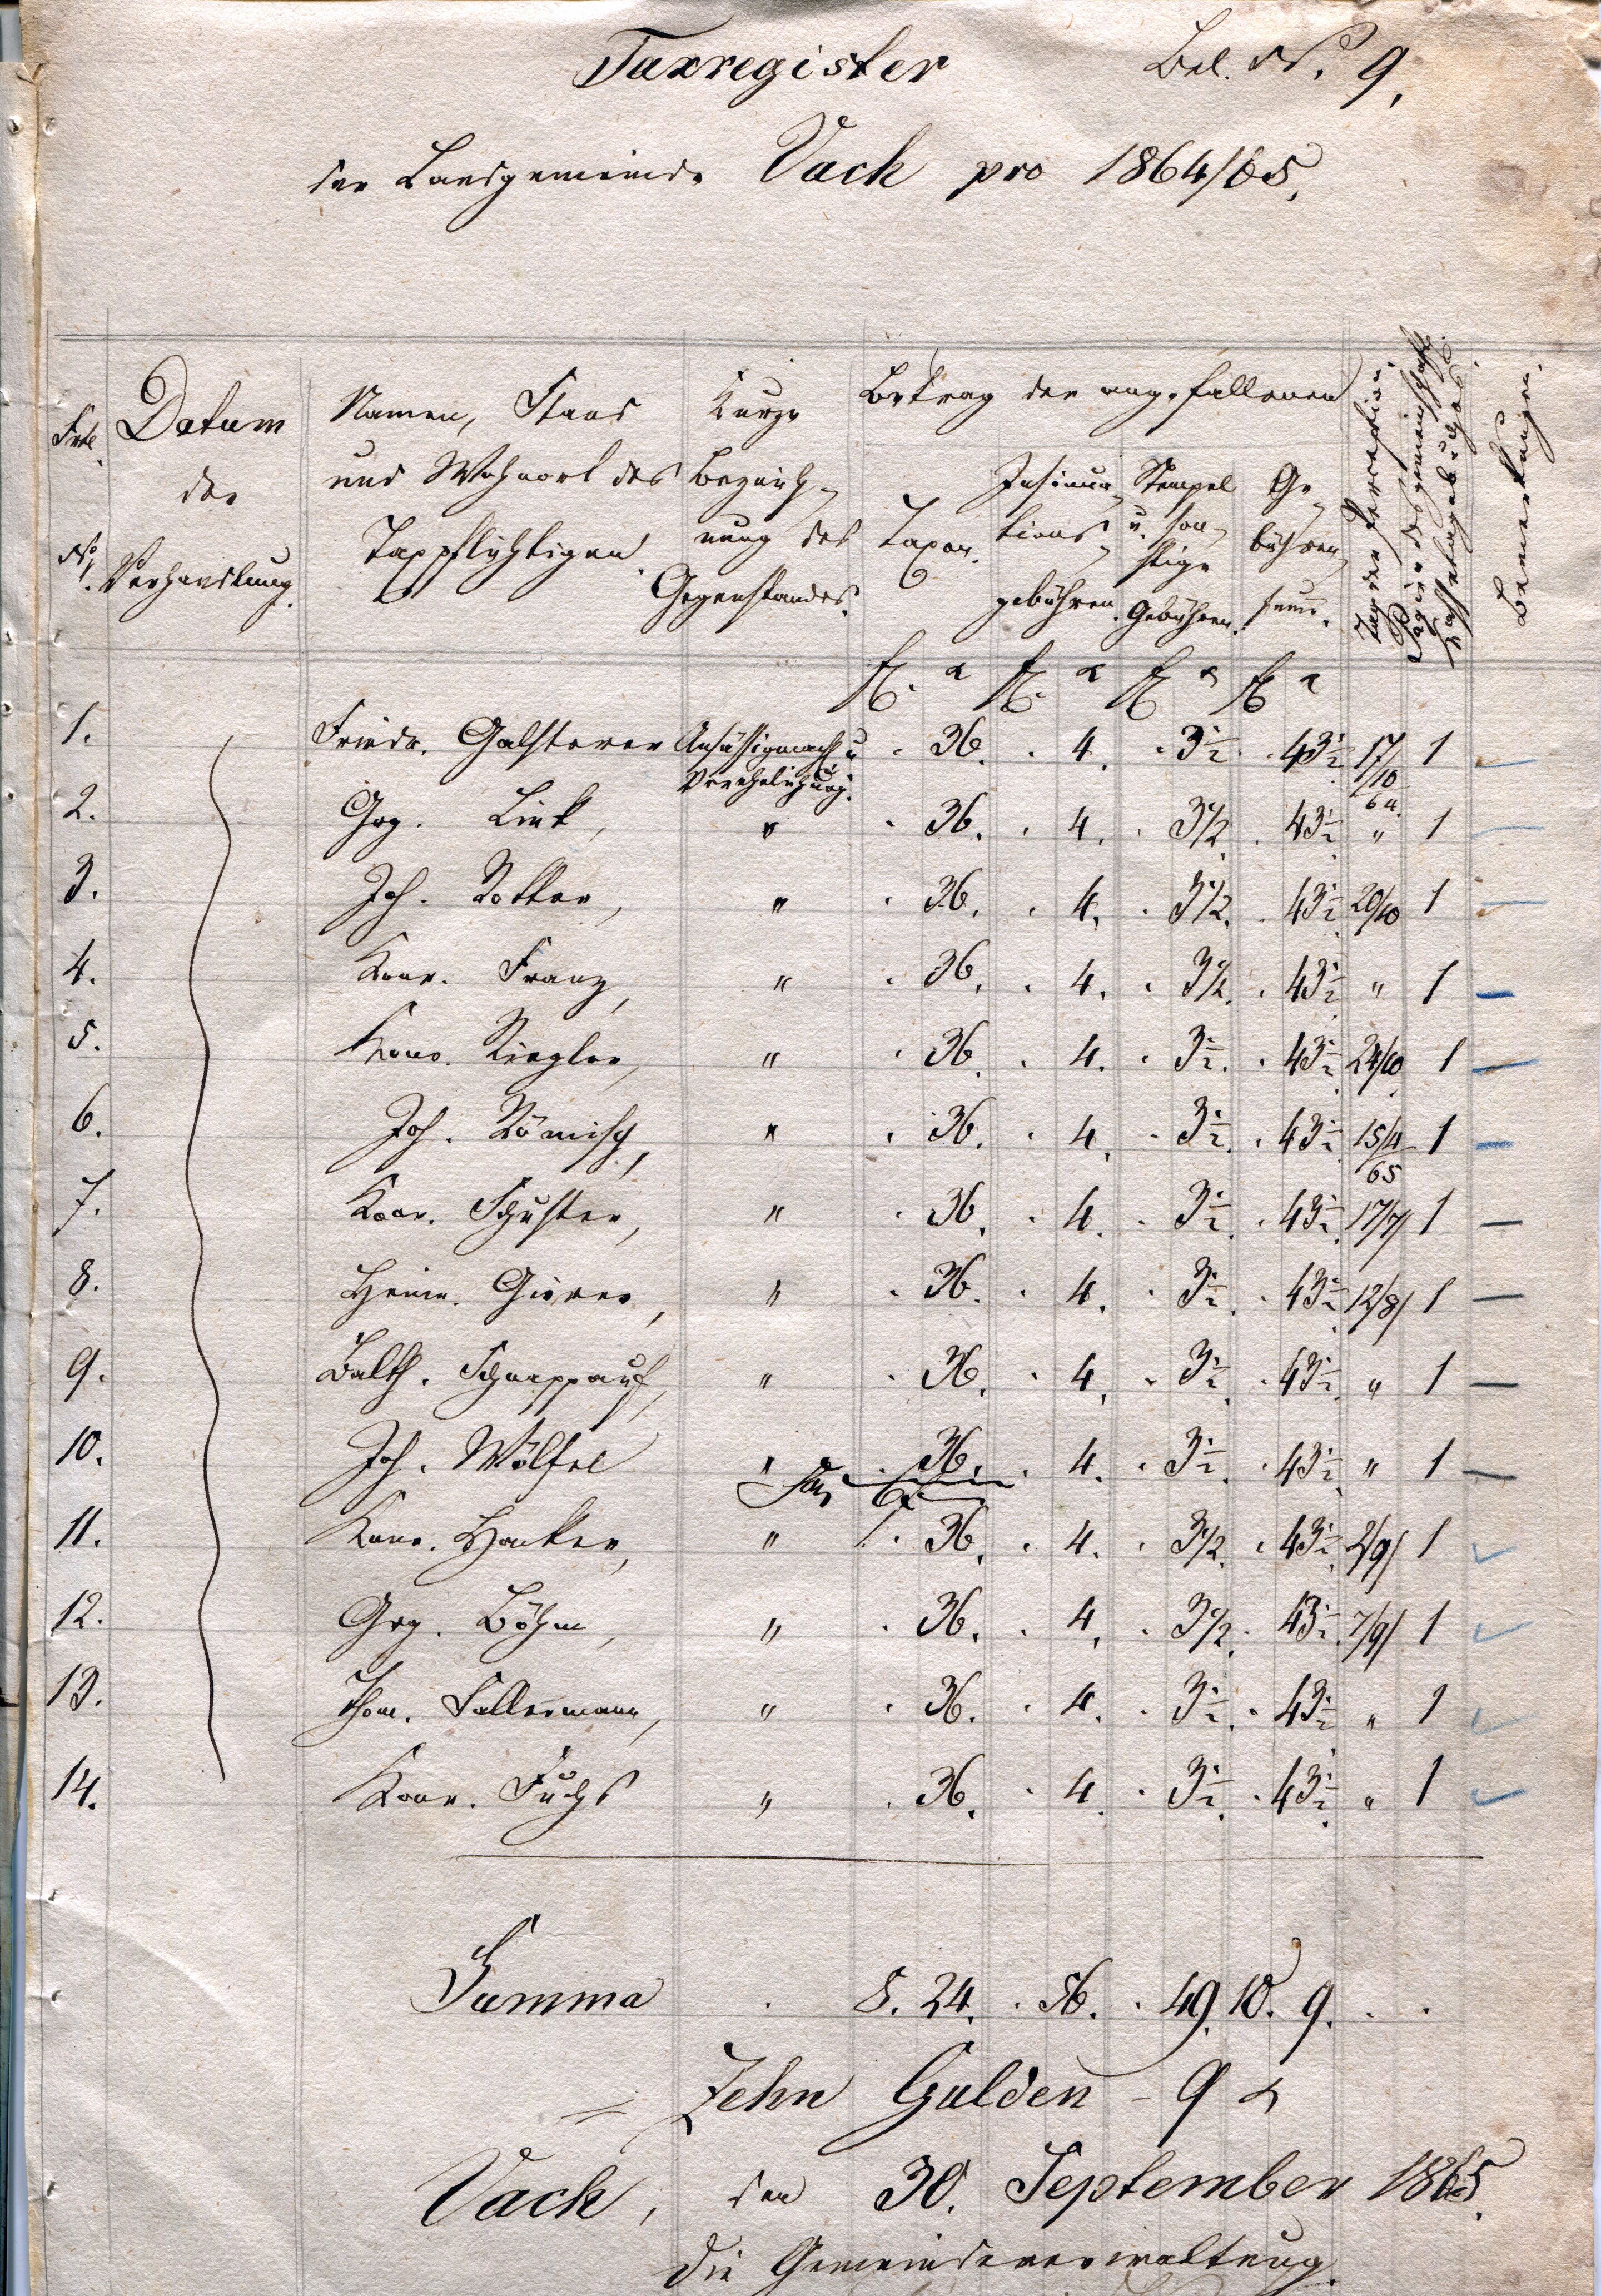 Taxregister Bel. No. 9.
der Landgemeinde Vach pro 1864/65.
Frtl. No. Datum der Verhandlung. Namen, Stand und Wohnort des Taxpflichtigen. Kurze Bezeich-nung des Gegenstandes. Betrag der angefallenen Taxen. Insinua-tions-gebühren. Stempel u. son-stige Gebühren. Ge-bühren summe. Tag der Bemerkungen.
fl. x fl. x fl x fl x
1. Friedr. Galsterer Ansässigmach. u. Verehelichung. . 36. . 4. . 3 1/2 . 43 1/2 17/10 64. 1 —
2. Grg. Link, " . 36. . 4. . 3 1/2 . 43 1/2 " 1 —
3. Joh. Rotter, " . 36. . 4. . 3 1/2. . 43 1/2 20/10 1 —
4. Konr. Franz, " . 36. . 4. . 3 1/2. . 43 1/2 " 1 —
5. Konr. Riegler, " . 36. . 4. . 3 1/2. . 43 1/2 24/10 1 —
6. Joh. Römisch, " . 36. . 4. . 3 1/2 . 43 1/2 15/4 65 1 —
7. Konr. Schuster, " . 36. . 4. . 3 1/2. . 43 1/2 17/7 1 —
8. Heinr. Gierer, " . 36. . 4. . 3 1/2. . 43 1/2 12/8 1 —
9. Balth. Schnappauf, " . 36. . 4. . 3 1/2. . 43 1/2 " 1 —
10. Joh. Wölfel " . 36. . 4. . 3 1/2. . 43 1/2 " 1 —
11. Konr. Hacker, " . 36. . 4. . 3 1/2. . 43 1/2 2/9 1
12. Grg. Böhm, " . 36. . 4. . 3 1/2. 43 1/2. 7/9 1
13. Thom. Fallermann, " . 36. . 4. . 3 1/2. . 43 1/2 " 1
14. Konr. Fuchs " . 36. . 4. . 3 1/2. . 43 1/2 " 1
Summa . 8. 24. . 56. . 49. 10. 9. . .
= Zehn Gulden – 9 x
Vach, den 30. September 1865.
Die Gemeindeverwaltung.